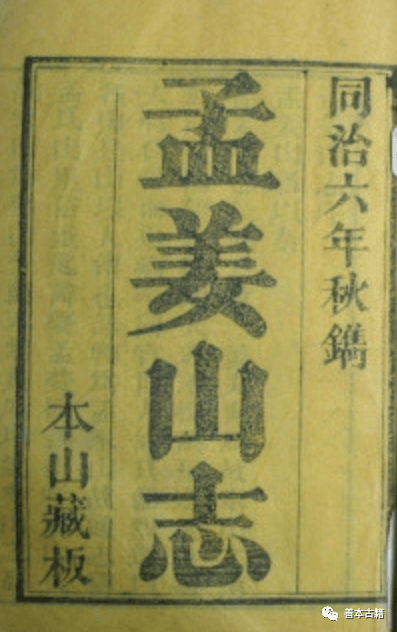 同治六年秋鐫
孟姜山志
本山藏板
善本古籍